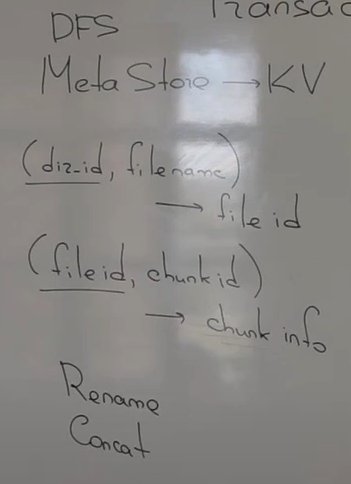 Transac
DFS
Meta Store → KV
(dir_id, filename)
→ file id
(fileid, chunk id)
→ chunk info
Rename
Concat